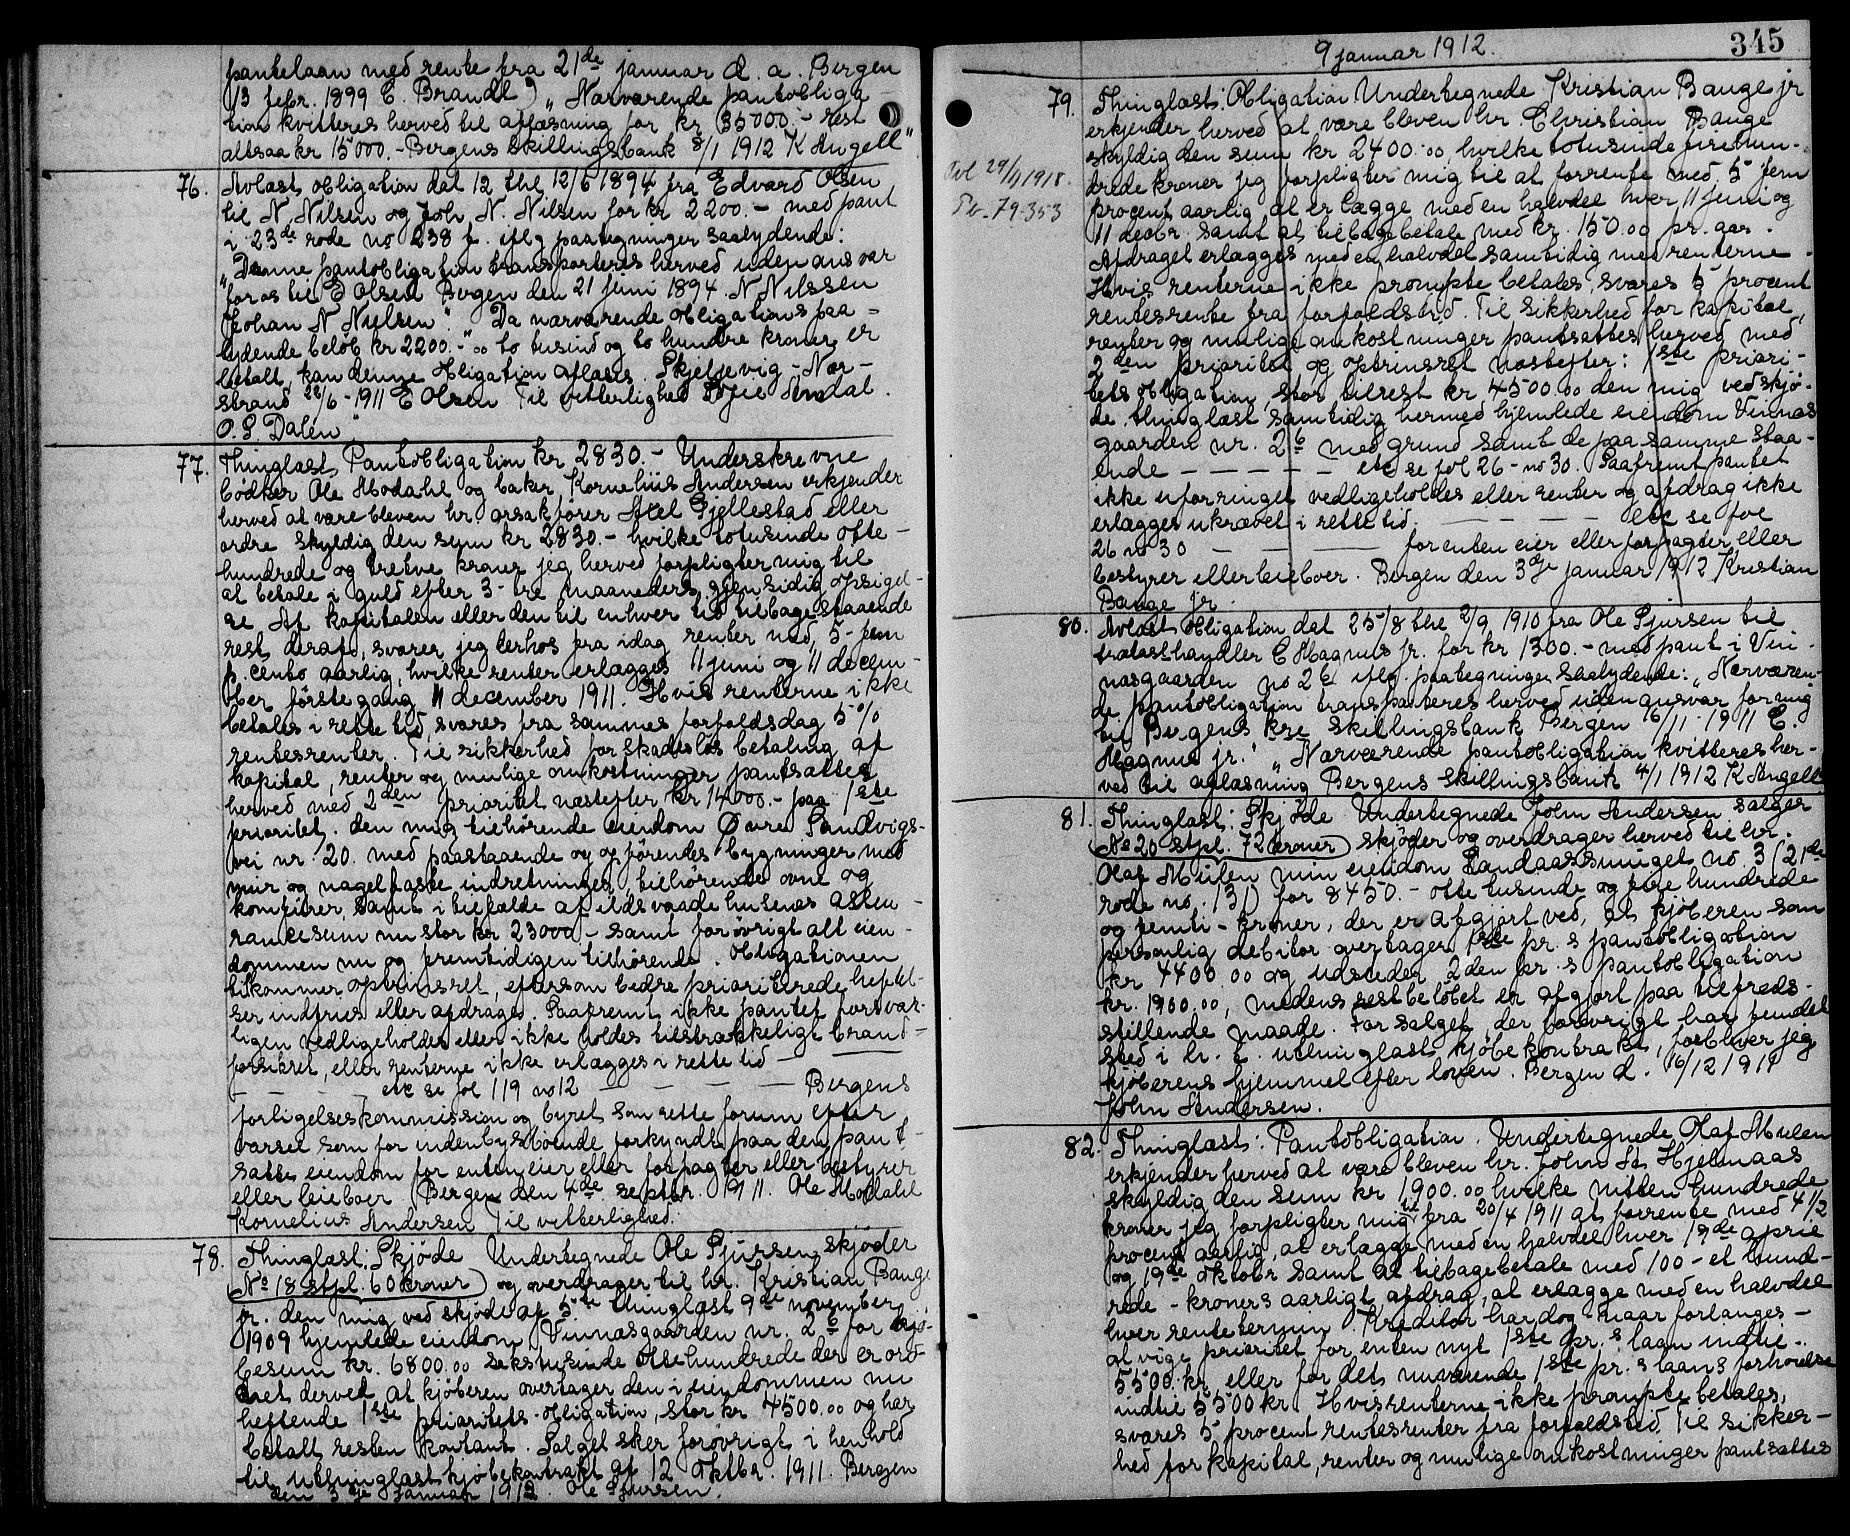 pantelaan med rente fra 21de januar d. a. Bergen
13 febr. 1899 C. Brandt) „Nærværende pantobliga-
tion kvitteres herved til aflæsning for kr 35000.- rest
altsaa kr 15000.- Bergens Skillingsbank 8/1 1912 K Angell"
76. Avlæst obligation dat 12 thl 12/6 1894 fra Edvard Olsen
til N. Nilsen og Joh. N. Nilsen for kr 2200.- med pant
i 23de rode no 238 f. iflg paategninger saalydende:
„Denne pantobligation transporteres herved uden ansvar
for os til E Olsen Bergen den 21 juni 1894. N. Nilssen
Johan N Nielsen". „Da nærværende obligations paa-
lydende beløb kr 2200.-" oo to tusind og to hundre kroner er
betalt, kan denne Obligation aflæses. Skjelje vig - Nær-
strand 28/6-1911 E Olsen Til vitterlighed
O. S. Dalen"
77. Thinglæst Pantobligation kr 2830.- Underskrevne
bødker Ole Modahl og baker Kornelius Andersen erkjender
herved at være bleven hr. orsakfører Axel Gjellestad eller
ordre skyldig den sum kr 2830.- hvilke totusinde otte-
hundrede og tretve kroner jeg herved forpligter mig til
at betale i guld efter 3- tre maaneders gjensidig opsigel-
se Af kapitalen eller den til enhver tid tilbagestaaende
rest deraf, svarer jeg derhos fra idag renter med, 5- fem
p. cento aarlig, hvilke renter erlægges 11 juni og 11 decem-
ber første gang 11 december 1911. Hvis renterne ikke
betales i rette tid, svares fra sammes forfaldsdag 5 %
rentesrenter. Til sikkerhed for skadesløs betaling af
kapital, renter og mulige omkostninger pantsættes
herved med 2den prioritet næstefter kr 14000.- paa 1ste
prioritet. den mig tilhørende eiendom Øvre Sandvigs-
vei nr. 20. med paastaaende og opførendes bygninger med
mur og nagelfaste indretninger, tilhørende ovne og
komfurer, samt i tilfælde af ildsvaade husenes assu-
rancesum nu stor kr 23000,- samt forøvrigt alt eien-
dommen nu og fremtidigen tilhørende. Obligationen
tilkommer optrinsret, eftersom bedre prioriterede heftel-
ser indfries eller afdrages. Saafremt ikke pantet forsvar-
ligen vedligeholdes eller ikke holdes tilstrækkeligt brand-
forsikret, eller renterne ikke erlægges i rette tid — —
— — — etc se fol 119 no 12 — — — — Bergens
forligelseskommission og byret som rette forum efter
varsel som for indenbys boende forkyndt paa den pant-
satte eiendom for enten eier eller forpagter eller bestyrer
eller leieboer. Bergen den 4de septbr. 1911. Ole Modahl
Kornelius Andersen Til vitterlighed.
78. Thinglæst: Skjøde Undertegnede Ole Sjursen skjøder
(No 18 stpl. 60 kroner) og overdrager til hr. Kristian Bauge
jr. den mig ved skjøde af 5te thinglæst 9de november
1909 hjemlede eiendom Vinnæsgaarden nr. 2 b for kjø-
besum kr. 6800.oo sekstusinde ottehundrede der er ord-
net derved at kjøberen overtager den i eiendommen nu
heftende 1ste prioritets-obligation, stor kr 4500.oo og har
betalt resten kontant. Salget sker forøvrigt i henhold
til utthinglæst kjøbekontrakt af 12 oktbr. 1911. Bergen
den 3dje januar 1912 Ole Sjursen.
9 januar 1912.
345
79. Thinglæst: Obligation Undertegnede Kristian Bauge jr
erkjender herved at være bleven hr. Christian Bauge
skyldig den sum kr 2400.oo, hvilke totusinde firehun-
drede kroner jeg forpligter mig til at forrente med 5 fem
procent aarlig, at erlægge med en halvdel hver 11 juni og
11 decbr. samt at tilbagebetale med kr. 150.oo pr. aar.
Afdraget erlægges med en halvdel samtidig med renterne.
Hvis renterne ikke prompte betales, svares 5 procent
rentesrente fra forfaldstid. Til sikkerhed for kapital,
renter og mulige omkostninger pantsættes herved med
2den prioritet og optrinsret næstefter: 1ste priori-
tets obligation stor tilrest kr. 4500.oo den mig ved skjø-
de, thinglæst samtidig hermed hjemlede eiendom Vinnæs
gaarden nr. 2 b med grund samt de paa samme staa-
ende — — — — — etc se fol 26 - no 30. Saafremt pantet
ikke uforringet vedligeholdes eller renter og afdrag ikke
erlægges ukrævet i rette tid. — — — — etc se fol
26 no 30 — — — — for enten eier eller forpagter eller
bestyrer eller leieboer. Bergen den 3dje januar 1912 Kristian
Bauge jr.
Avl 29/4 1918.
Pb. 79-353
80. Avlæst Obligation dat 25/8 thl 2/9 1910 fra Ole Sjursen til
trælasthandler E Magnus jr. for kr 1300.- med pant i Vin-
næsgaarden no 2 b iflg. paategninger saalydende: „Nærværen-
de pantobligation transporteres herved uden ansvar for mig
til Bergens Skillingsbank Bergen 16/11-1911 E.
Magnus jr." „Nærværende pantobligation kvitteres her-
ved til aflæsning Bergens Skillingsbank 4/1 1912 K Angell"
81. Thinglæst: Skjøde Undertegnede John Andersen sælger
(No 20 stpl. 72 kroner) skjøder og overdrager herved til hr.
Olaf Mulen min eiendom Landaassvinget no. 3 (21de
rode no. 131) for 8450.- otte tusinde og fire hundrede
og femti - kroner, der er afgjort ved, at kjøberen som
personlig debitor overtager 1ste pr. s pantobligation
kr 4400.oo og udsteder 2den pr. s pantobligation
kr. 1900.oo, medens restbeløbet er afgjort paa tilfreds-
stillende maade. For salget, der forøvrigt har fundet
sted i h. t. utthinglæst kjøbekontrakt, forbliver jeg
kjøberens hjemmel efter loven. Bergen d. 16/12 1911
John Andersen.
82. Thinglæst: Pantobligation. Undertegnede Olaf Mulen
erkjender herved at være bleven hr. John St. Hjelmaas
skyldig den sum kr 1900.oo hvilke nitten hundrede
kroner jeg forpligter mig til fra 20/4 1911 at forrente med 4 1/2
procent aarlig, at erlægge med en halvdel hver 19de april
og 19de oktobr samt at tilbagebetale med 100 - et hund-
rede - kroners aarligt afdrag, at erlægge med en halvdel
hver rentetermin. Kreditor har dog - naar forlanges -
at vige prioritet for enten nyt 1ste pr. s laan indtil
5500 kr, eller for det nuværende 1ste pr. s laans forhøielse
indtil 5500 kr. Hvis renterne ikke prompte betales,
svares 5 procent rentesrenter fra forfaldstid. Til sikker-
hed for kapital, renter og mulige omkostninger pantsættes